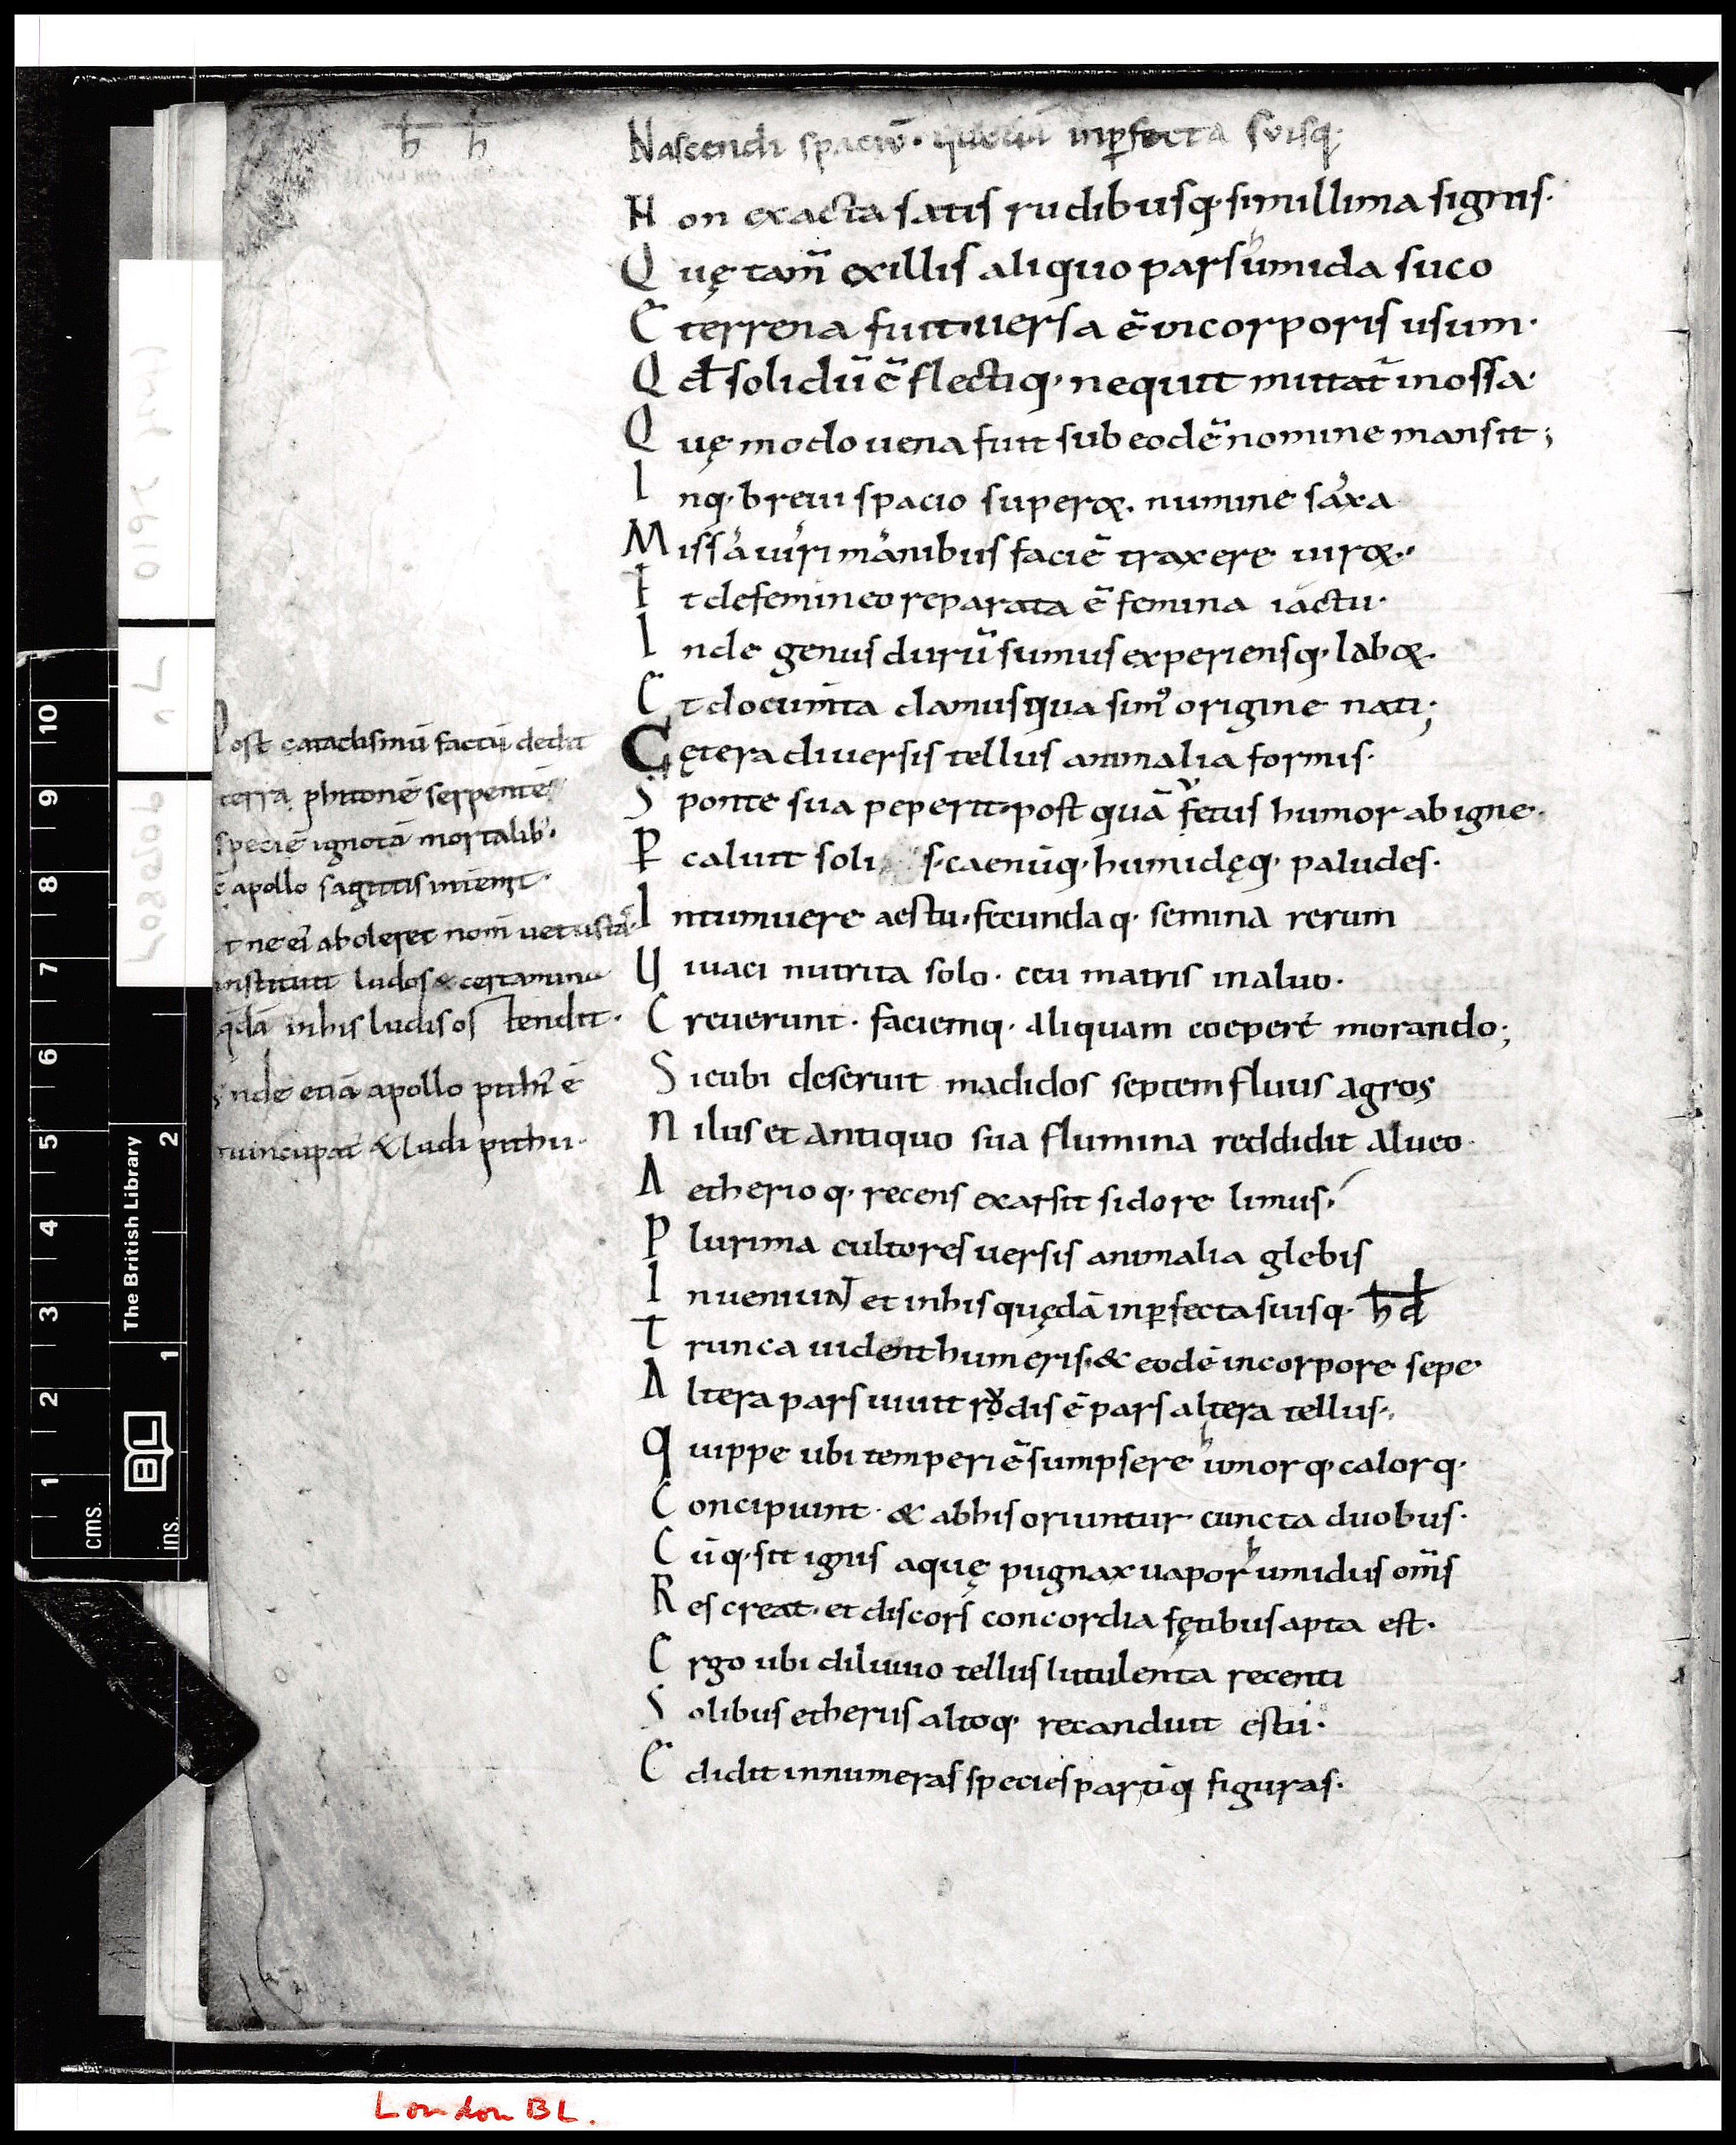 h̄ h̄
Nascendi spaciū· quedā inꝑfecta suisq;
Non exacta satis rudibusq; simillima signis·
Quę tam̄ exillis aliquo pars humida suco
Et terrena fuit· uersa ē incorporis usum·
Qđ solidū ē flectiq; nequit mittat̄ inossa·
Quę modo uena fuit sub eodē nomine mansit;
Inq; breui spacio superoꝝ numine saxa
Missa uiri manibus faciē traxere uiroꝝ·
Et defemineo reparata ē femina iactu·
Inde genus durū sumus experiensq; laboꝝ
Et documta damus qua sim᾽ origine nati;
Cętera diuersis tellus animalia formis·
Sponte sua peperit· post quā uetus humor ab igne·
Pcaluit soli s· caenūq; humidęq; paludes·
Intumuere aestu· fecundaq; semina rerum
Uiuaci nutrita solo· ceu matris inaluo·
Creuerunt· faciemq; aliquam coeperē morando;
Sicubi deseruit madidos septemfluus agros
Nilus et antiquo sua flumina reddidit alueo·
Aetherioq; recens exarsit sidore limus·
Plurima cultores uersis animalia glebis
Inueniunt et inhis quędā inꝑfecta suisq; h̄đ
Trunca uident humeris· & eodē incorpore sepe
Altera pars uiuit rudis ē pars altera tellus·
Quippe ubi temperiē sumpsere humorq; calorq;
Concipiunt· & abhis oriuntur cuncta duobus·
Cūq; sit ignis aquę pugnax uapor humidus om̄is
Res creat· et discors concordia fętibus apta est·
Ergo ubi diluuio tellus lutulenta recenti
Solibus etheriis altoq; recanduit estū·
Edidit innumeras species partiq; figuras·
Post cataclismū factū dedit
terra phitonē serpentē
speciē ignotā mortalib᾽·
ē apollo sagittis interemit·
t ne ei aboleret nom̄ uetustas
instituit ludos & certamina
qdā inhis ludis os tendit·
nde etiā apollo pithi᾽ ē
nuncupat̄ & ludi pithii·
10
9
8
7
6
5
4
3
2
1
cms.
The British Library
2
1
ins.
BL
London BL.